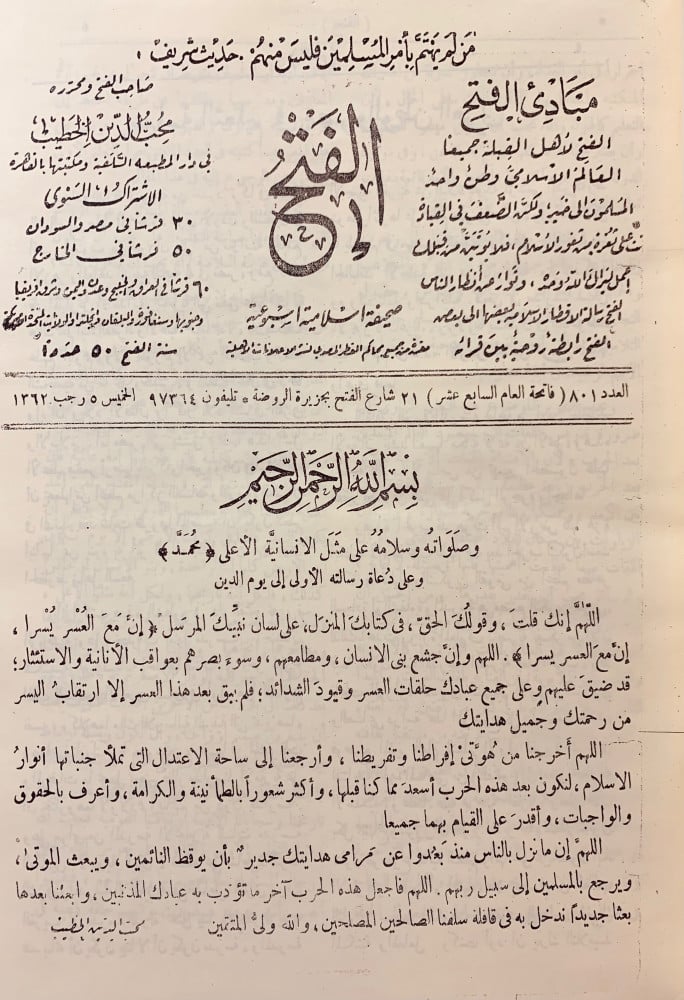 من لم يهتم بأمر المسلمين فليس منهم. حديث شريف
مبادئ الفتح
الفتح لأهل القبلة جميعا
العالم الاسلامي وطن واحد
المسلمون الى خير ولكن الضعف في القيادة
أنت على ثغرة من ثغور الاسلام، فلا يؤتين من قبلك
إعمل ليراك الله وحده، وتوار عن أنظار الناس
الفتح رسالة الاقطار الاسلامية بعضها الى بعض
الفتح رابطة روحية بين قرائه
الفتح
صحيفة اسلامية اسبوعية
صاحب الفتح ومحرره
محب الدين الخطيب
في دار المطبعة السلفية ومكتبتها بالقاهرة
الاشتراك السنوي
٣٠ قرشا في مصر والسودان
٥٠ قرشا في الخارج
٦٠ قرشا في العراق والخليج وعدن واليمن وشرق افريقيا
سنة الفتح ٥٠ عددا
العدد ٨٠١ ( فاتحة العام السابع عشر ) ٢١ شارع الفتح بجزيرة الروضة * تليفون ٩٧٣٦٤ الخميس ٥ رجب ١٣٦٢
بسم الله الرحمن الرحيم
وصلواته وسلامه على مثل الانسانية الأعلى ﴿ محمد ﴾
وعلى دعاة رسالته الأولى إلى يوم الدين
اللهم إنك قلت، وقولك الحق، في كتابك المنزل، على لسان نبيك المرسل ﴿ إن مع العسر يسرا،
إن مع العسر يسرا ﴾. اللهم وإن جشع بني الانسان، ومطامعهم، وسوء بصرهم بعواقب الأنانية والاستئثار؛
قد ضيق عليهم وعلى جميع عبادك حلقات العسر وقيود الشدائد؛ فلم يبق بعد هذا العسر إلا ارتقاب اليسر
من رحمتك وجميل هدايتك
اللهم أخرجنا من هوتي إفراطنا وتفريطنا، وأرجعنا إلى ساحة الاعتدال التي تملأ جنباتها أنوار
الاسلام، لنكون بعد هذه الحرب أسعد مما كنا قبلها، وأكثر شعوراً بالطمأنينة والكرامة، وأعرف بالحقوق
والواجبات، وأقدر على القيام بهما جميعا
اللهم إن ما نزل بالناس منذ بعدوا عن مرامي هدايتك جدير بأن يوقظ النائمين، ويبعث الموتى،
ويرجع بالمسلمين إلى سبيل ربهم. اللهم فاجعل هذه الحرب آخر ما تؤدب به عبادك المذنبين، وابعثنا بعدها
بعثا جديداً ندخل به في قافلة سلفنا الصالحين المصلحين، والله ولي المتقين
محب الدين الخطيب